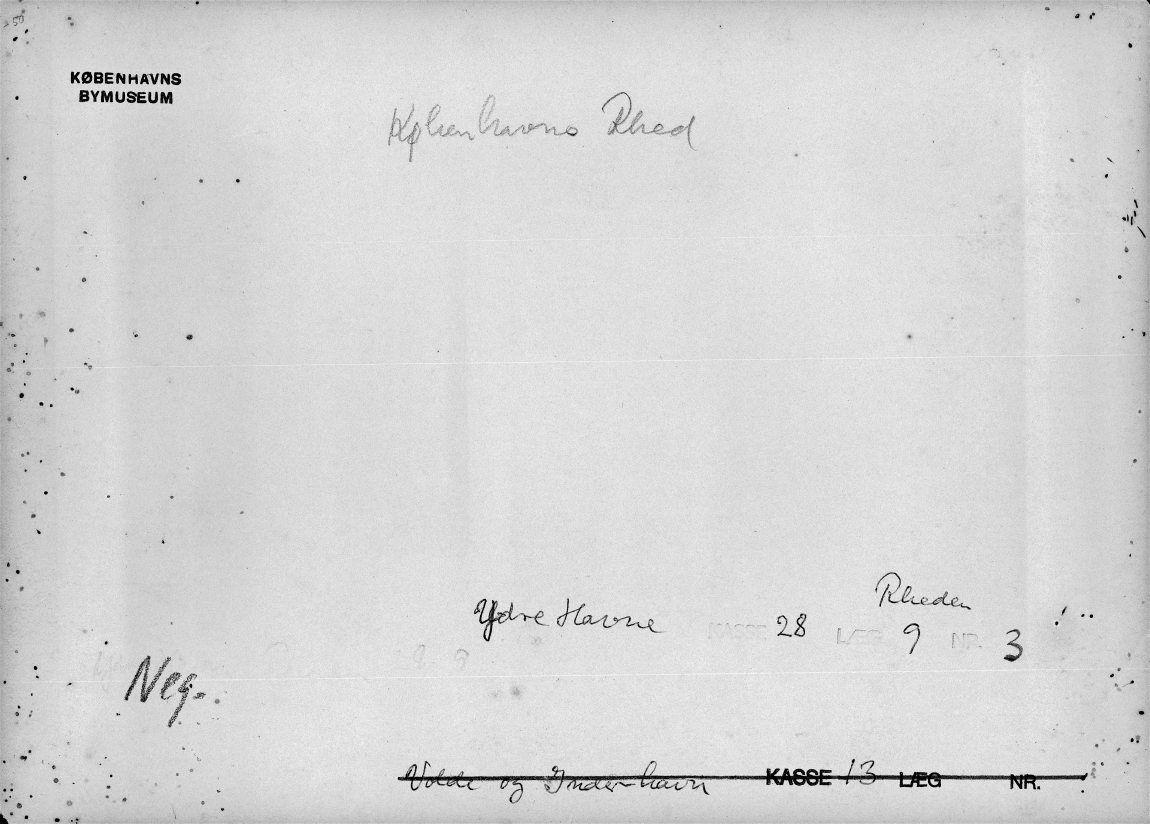 50
KØBENHAVNS
BYMUSEUM
Københavns Rhed
Rheden
Ydre Havne KASSE 28 LÆG 9 NR. 3
Neg.
Volde og Inderhavn KASSE 13 LÆG NR.